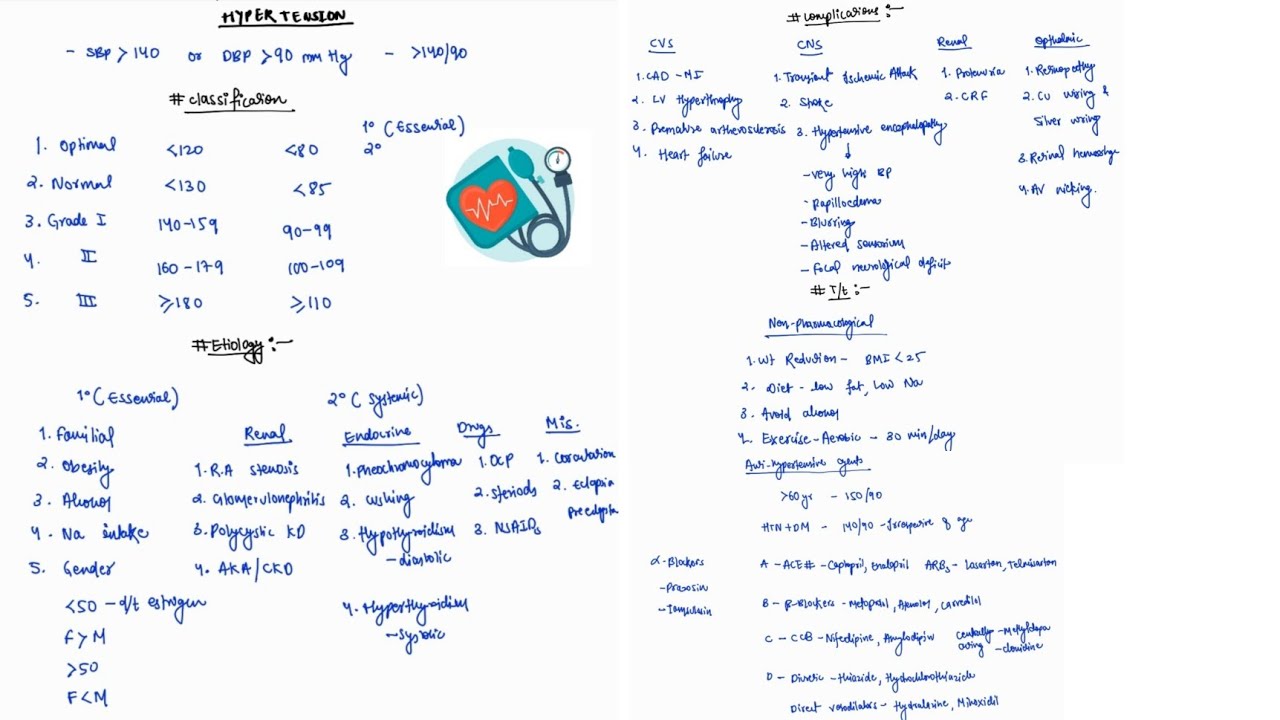 HYPERTENSION
- SBP > 140 or DBP > 90 mm Hg - >140/90
# Classification
1° (Essential)
2°
1. Optimal <120 <80
2. Normal <130 <85
3. Grade I 140-159 90-99
4. II 160-179 100-109
5. III ≥180 ≥110
# Etiology :-
1° (Essential) 2° (Systemic)
1. Familial
2. Obesity
3. Alcohol
4. Na intake
5. Gender
<50 - d/t estrogen
F > M
>50
F < M
Renal
1. R.A stenosis
2. Glomerulonephritis
3. Polycystic KD
4. AKA/CKD
Endocrine
1. Pheochromocytoma
2. Cushing
3. Hypothyroidism
- diastolic
4. Hyperthyroidism
- systolic
Drugs
1. OCP
2. Steriods
3. NSAIDs
Mis.
1. Coarctation
2.
# Complications :-
CVS
1. CAD - MI
2. LV Hyperthrophy
3. Premature artherosclerosis
4. Heart failure
CNS
1. Transient Ischemic Attack
2. Stroke
3. Hypertensive encephalopathy
↓
- very high BP
- papilloedema
- Blurring
- Altered sensorium
- Focal neurological deficit
Renal
1. Proteinuria
2. CRF
Opthalmic
1. Retinopathy
2. Cu wiring &
Silver wiring
3. Retinal hemorrhage
4. AV nicking.
# T/t :-
Non-pharmacological
1. Wt Reduction - BMI < 25
2. Diet - low fat, Low Na
3. Avoid alcohol
4. Exercise - Aerobic - 30 min/day
Anti-hypertensive agents
>60 yr - 150/90
HTN + DM - 140/90 - Irrespective of age
α-Blockers
- Prazosin
- Tamsulosin
A - ACE # - Captopril, Enalapril ARBs - Losartan, Telmisartan
B - β-Blockers - Metoprolol, Atenolol, Carvedilol
C - CCB - Nifedipine, Amylodipine centrally acting - Methyldopa
- clonidine
D - Diuretic - thiazide, Hydrochlorothiazide
Direct vasodilators - Hydralazine, Minoxidil